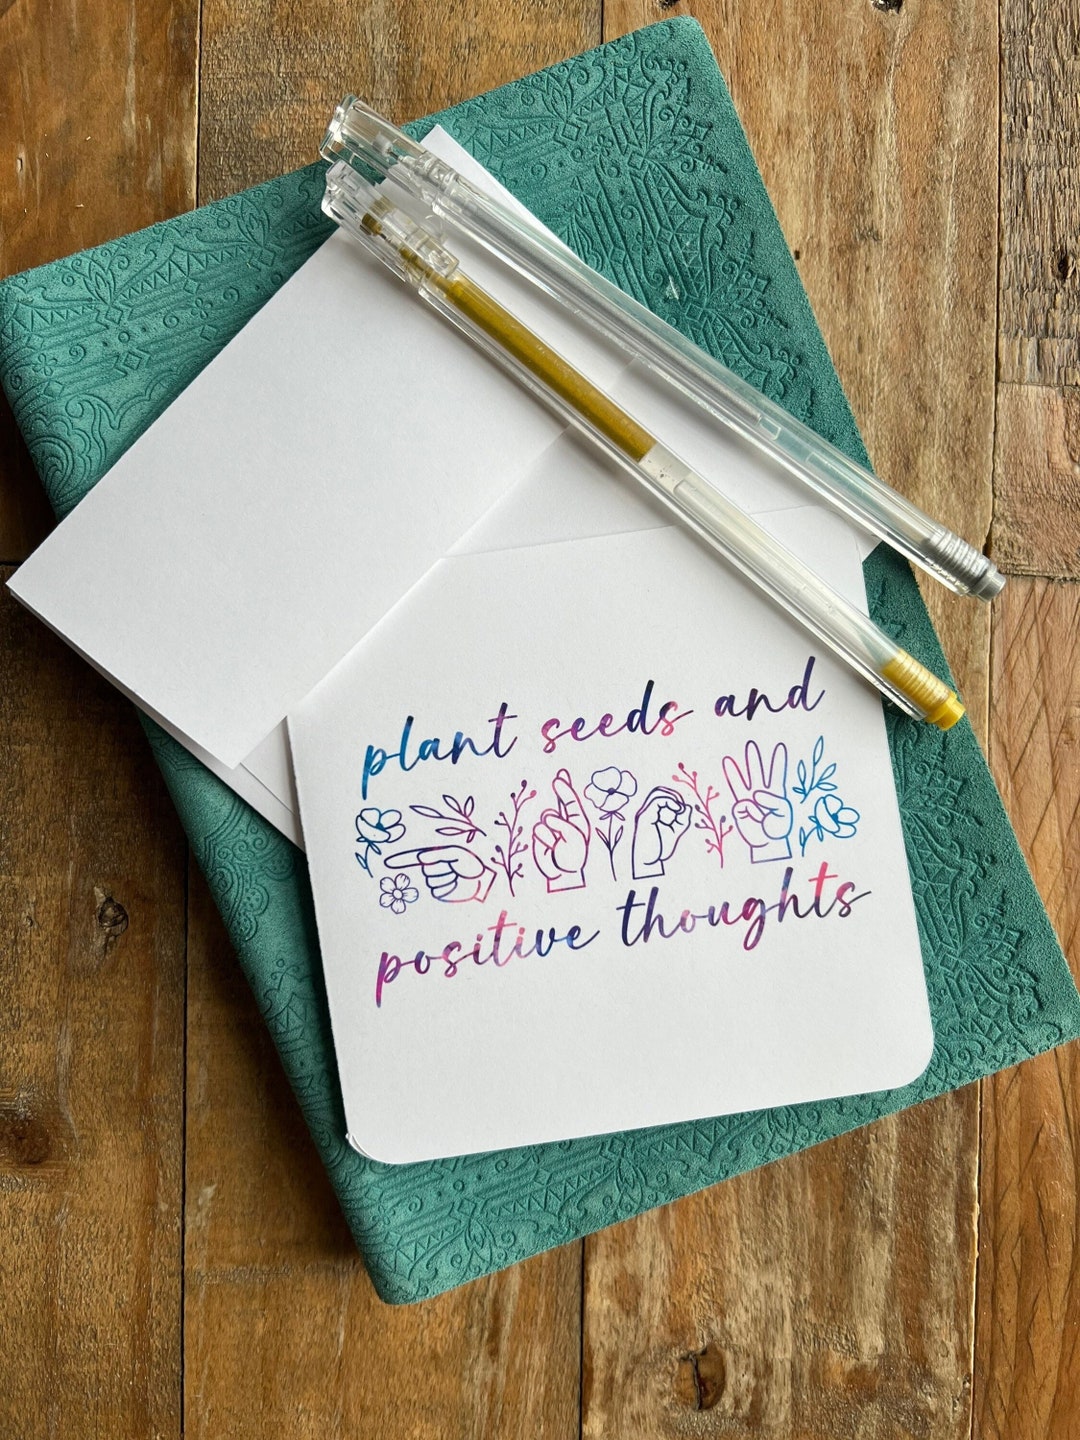 plant seeds and
positive thoughts